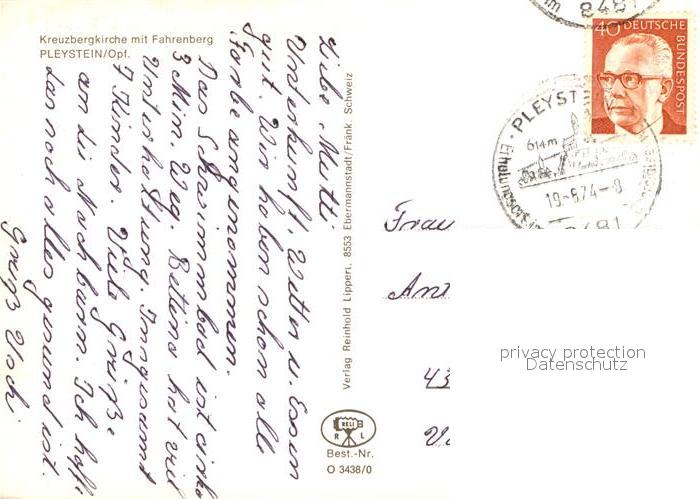 Kreuzbergkirche mit Fahrenberg
PLEYSTEIN/Opf.
Liebe Mutti!
Unterkunft, Wetter u. Essen
gut. Wir haben schon alle
Farbe angenommen.
Das Schwimmbad ist cirka
3 Min. Weg. Bettina hat viel
Unterhaltung. Insgesamt
7 Kinder. Viele Grüße
an die Nachbarn. Ich hoffe
das noch alles gesund ist.
Gruß Uschi
Verlag Reinhold Lippert, 8553 Ebermannstadt/Fränk. Schweiz
RELI
R L
Best.-Nr.
O 3438/0
8481
40 DEUTSCHE
BUNDESPOST
PLEYSTE
614m
Erholungsort
19-8.74-8
8481
Frau
An
43
privacy protection
Datenschutz